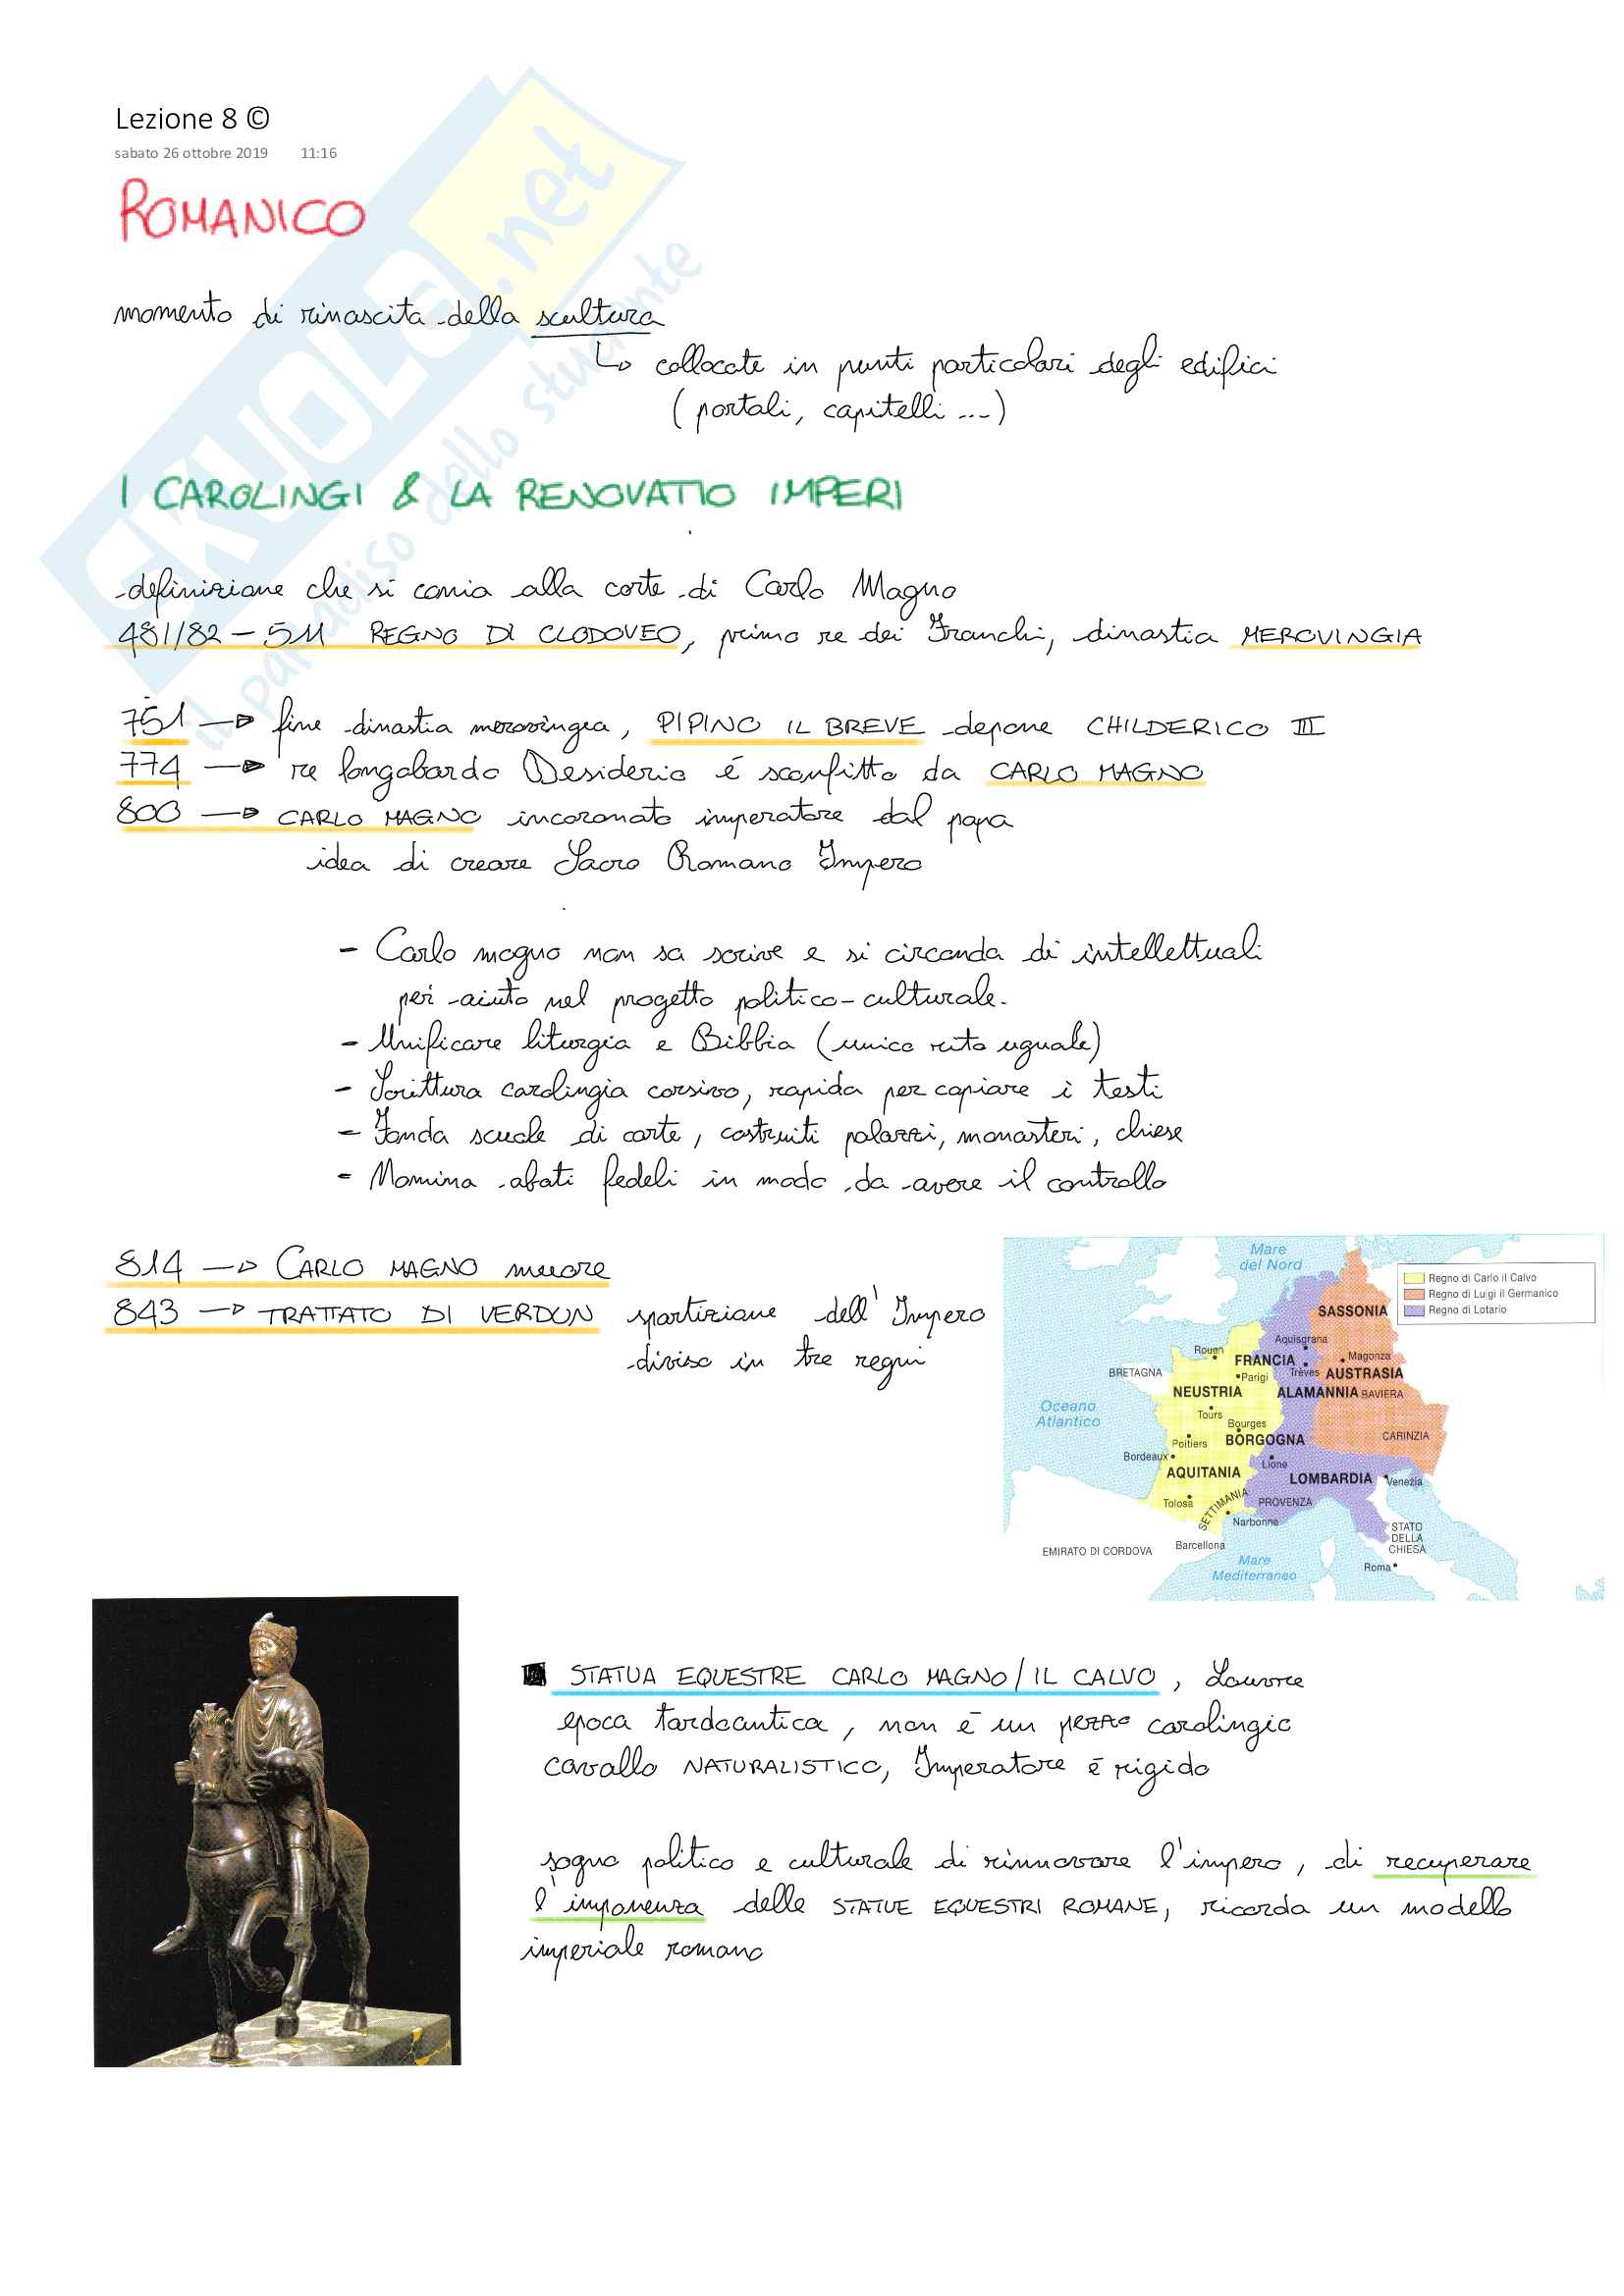 Lezione 8 ©
sabato 26 ottobre 2019 11:16
ROMANICO
momento di rinascita della scultura
↳ collocate in punti particolari degli edifici
(portali, capitelli ...)
I CAROLINGI & LA RENOVATIO IMPERI
definizione che si conia alla corte di Carlo Magno
481/82 - 511 REGNO DI CLODOVEO, primo re dei Franchi, dinastia MEROVINGIA
751 → fine dinastia merovingea, PIPINO IL BREVE depone CHILDERICO III
774 → re longobardo Desiderio é sconfitto da CARLO MAGNO
800 → CARLO MAGNO incoronato imperatore dal papa
idea di creare Sacro Romano Impero
- Carlo magno non sa scrive e si circonda di intellettuali
per aiuto nel progetto politico-culturale.
- Unificare liturgia e Bibbia (unico rito uguale)
- Scrittura carolingia corsivo, rapida per copiare i testi
- Fonda scuole di corte, costruiti palazzi, monasteri, chiese
- Nomina abati fedeli in modo da avere il controllo
814 → CARLO MAGNO muore
843 → TRATTATO DI VERDUN spartizione dell'Impero
diviso in tre regni
Mare
del Nord
Regno di Carlo il Calvo
Regno di Luigi il Germanico
Regno di Lotario
SASSONIA
Aquisgrana
Rouen
FRANCIA
Magonza
BRETAGNA
Parigi
Trèves
AUSTRASIA
NEUSTRIA
ALAMANNIA
BAVIERA
Oceano
Atlantico
Tours
Bourges
Poitiers
BORGOGNA
CARINZIA
Bordeaux
Lione
AQUITANIA
LOMBARDIA
Venezia
Tolosa
SETTIMANIA
PROVENZA
Narbonne
STATO
DELLA
CHIESA
EMIRATO DI CORDOVA
Barcellona
Mare
Mediterraneo
Roma
STATUA EQUESTRE CARLO MAGNO/IL CALVO, Louvre
epoca tardoantica, non è un pezzo carolingio
cavallo NATURALISTICO, Imperatore è rigido
sogno politico e culturale di rinnovare l'impero, di recuperare
l'imponenza delle STATUE EQUESTRI ROMANE, ricorda un modello
imperiale romano
SKUOLA.net
il paradiso dello studente